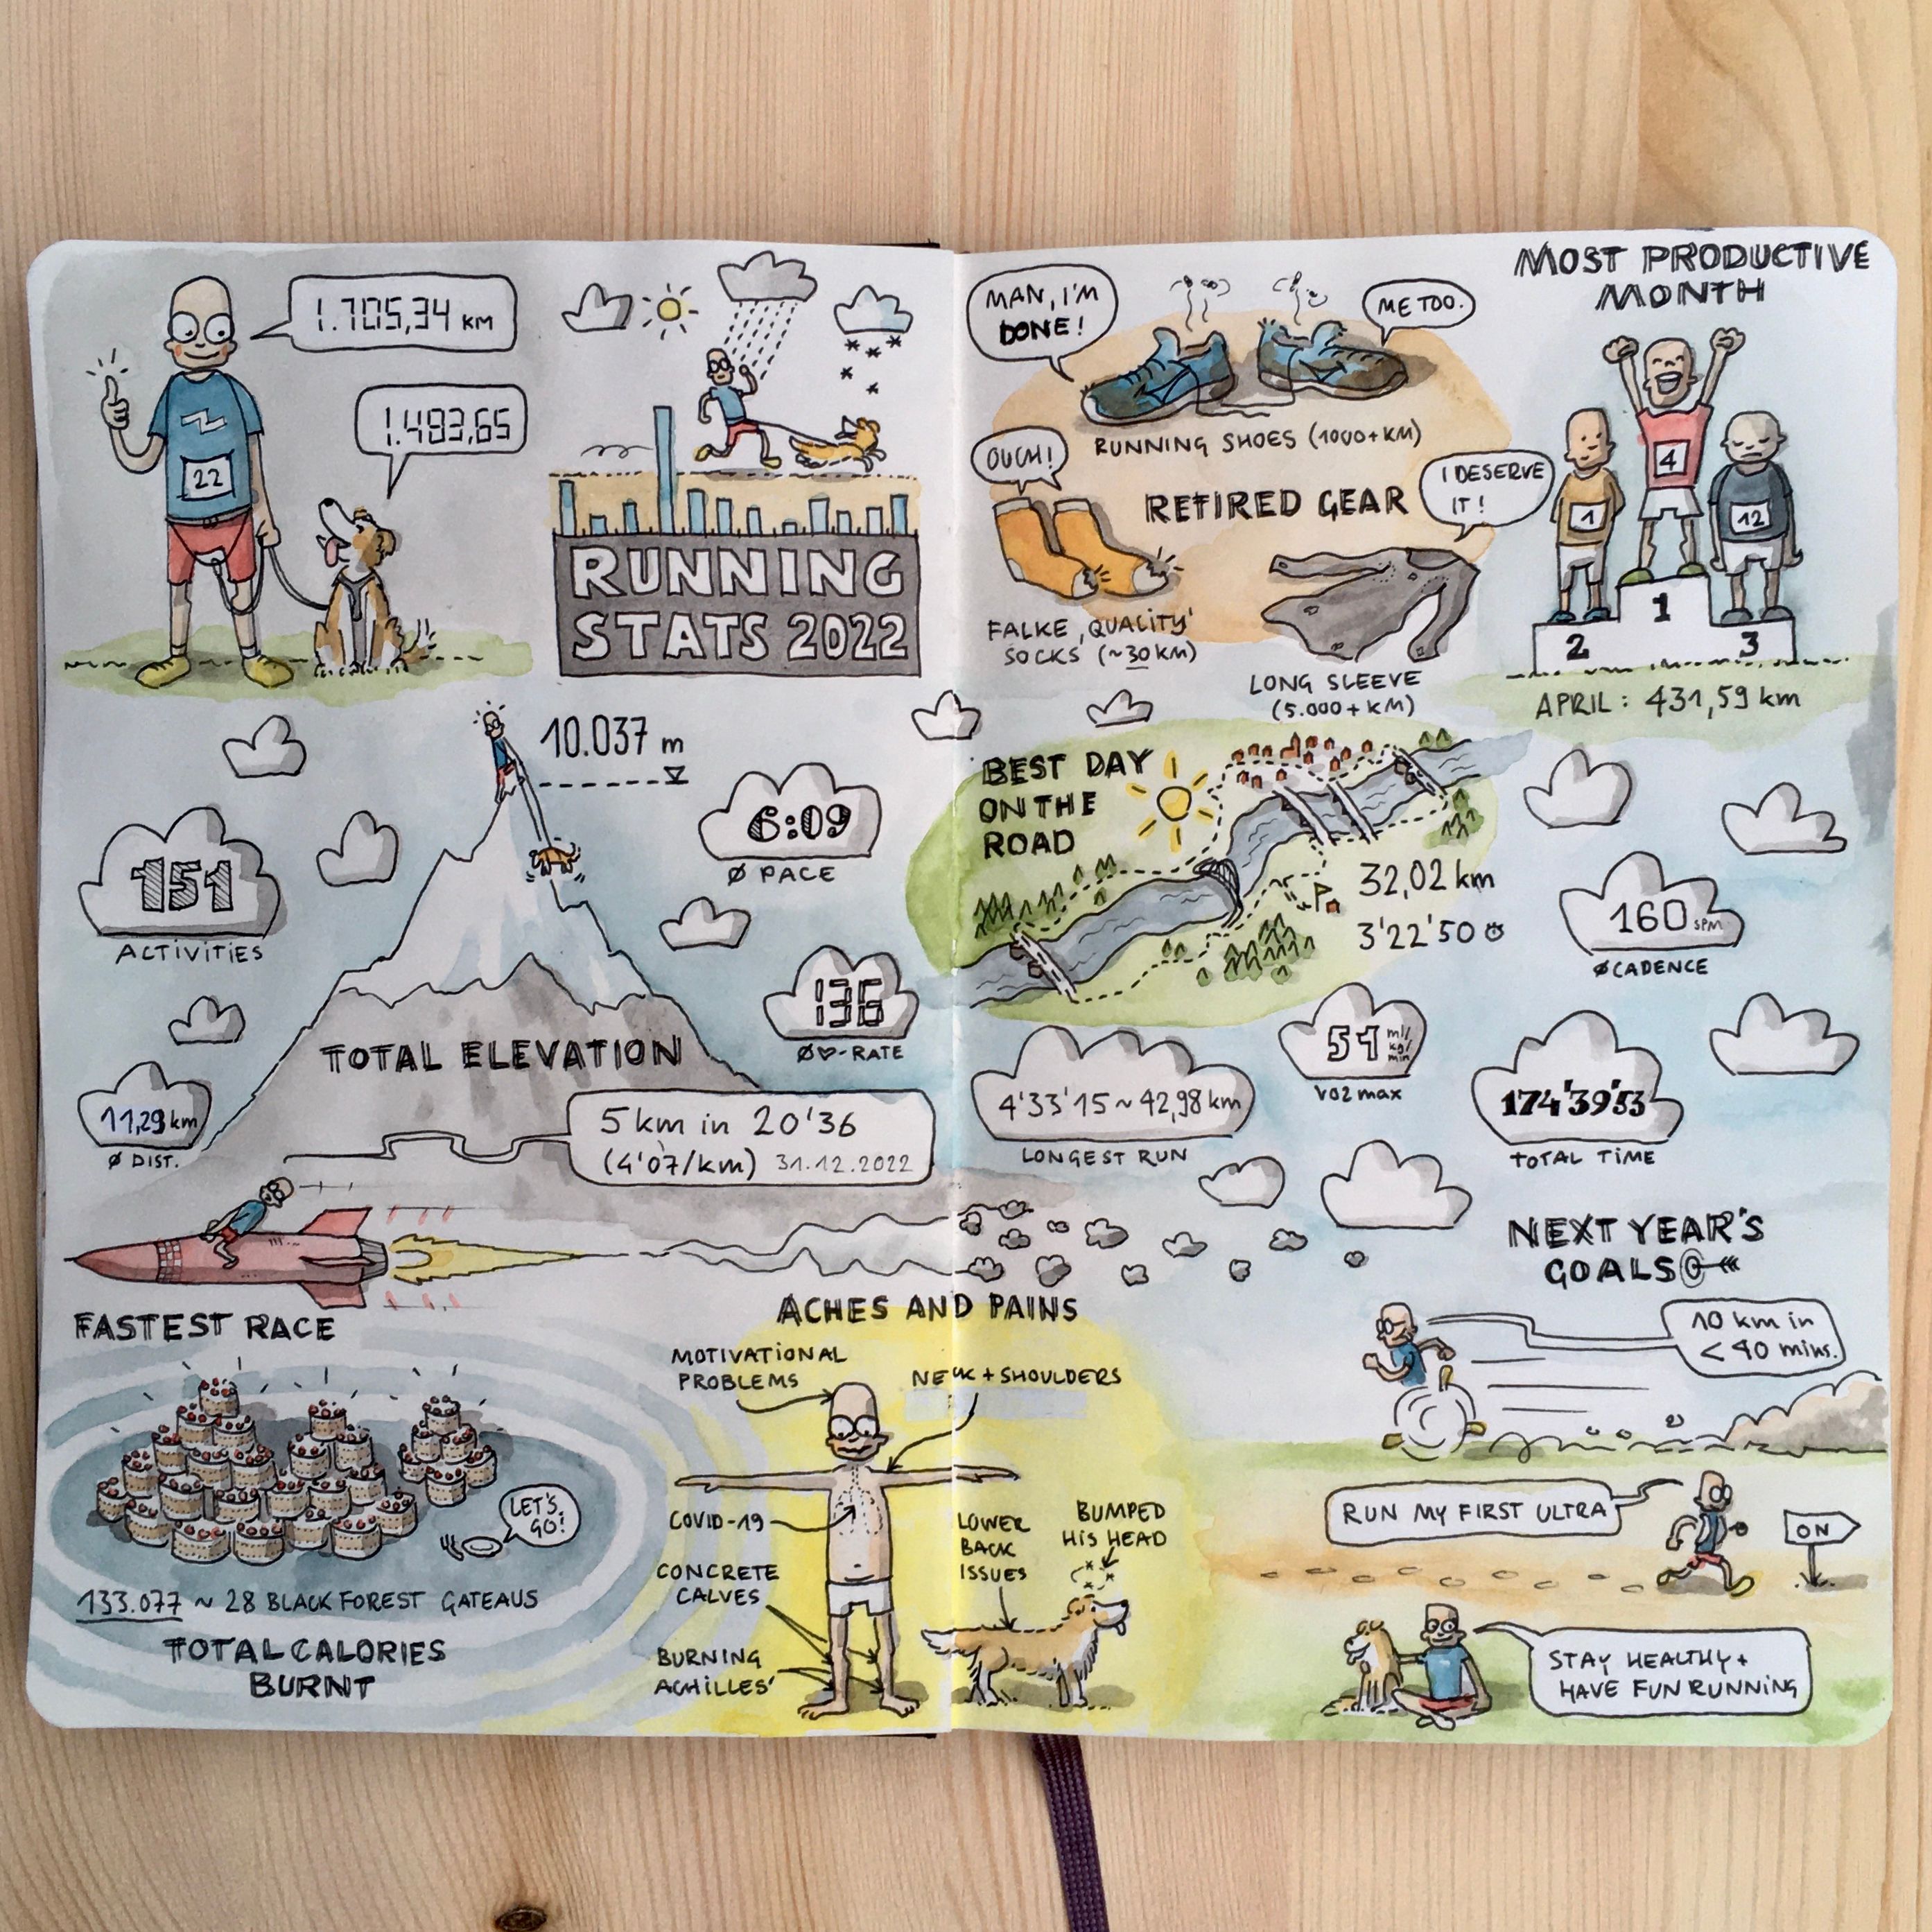 1.705,34 KM
1.493,65
22
RUNNING
STATS 2022
10.037 m
151
ACTIVITIES
6:09
Ø PACE
136
Ø♡-RATE
TOTAL ELEVATION
11,29 km
Ø DIST.
5 km in 20'36
(4'07/km) 31.12.2022
FASTEST RACE
LET'S
GO!
133.077 ~ 28 BLACK FOREST GATEAUS
TOTAL CALORIES
BURNT
ACHES AND PAINS
MOTIVATIONAL
PROBLEMS
NECK + SHOULDERS
COVID-19
CONCRETE
CALVES
BURNING
ACHILLES'
LOWER
BACK
ISSUES
BUMPED
HIS HEAD
MAN, I'M
DONE!
ME TOO.
RUNNING SHOES (1000+KM)
OUCH!
RETIRED GEAR
I DESERVE
IT!
FALKE ,QUALITY'
SOCKS (~30 KM)
LONG SLEEVE
(5.000+KM)
MOST PRODUCTIVE
MONTH
4
1
12
1
2
3
APRIL: 431,59 km
BEST DAY
ON THE
ROAD
32,02 km
3'22'50
160 SPM
ØCADENCE
51 ml/
kg/
min
VO2max
4'33'15 ~ 42,98 km
LONGEST RUN
174'39'53
TOTAL TIME
NEXT YEAR'S
GOALS
10 km in
< 40 mins.
RUN MY FIRST ULTRA
ON
STAY HEALTHY +
HAVE FUN RUNNING